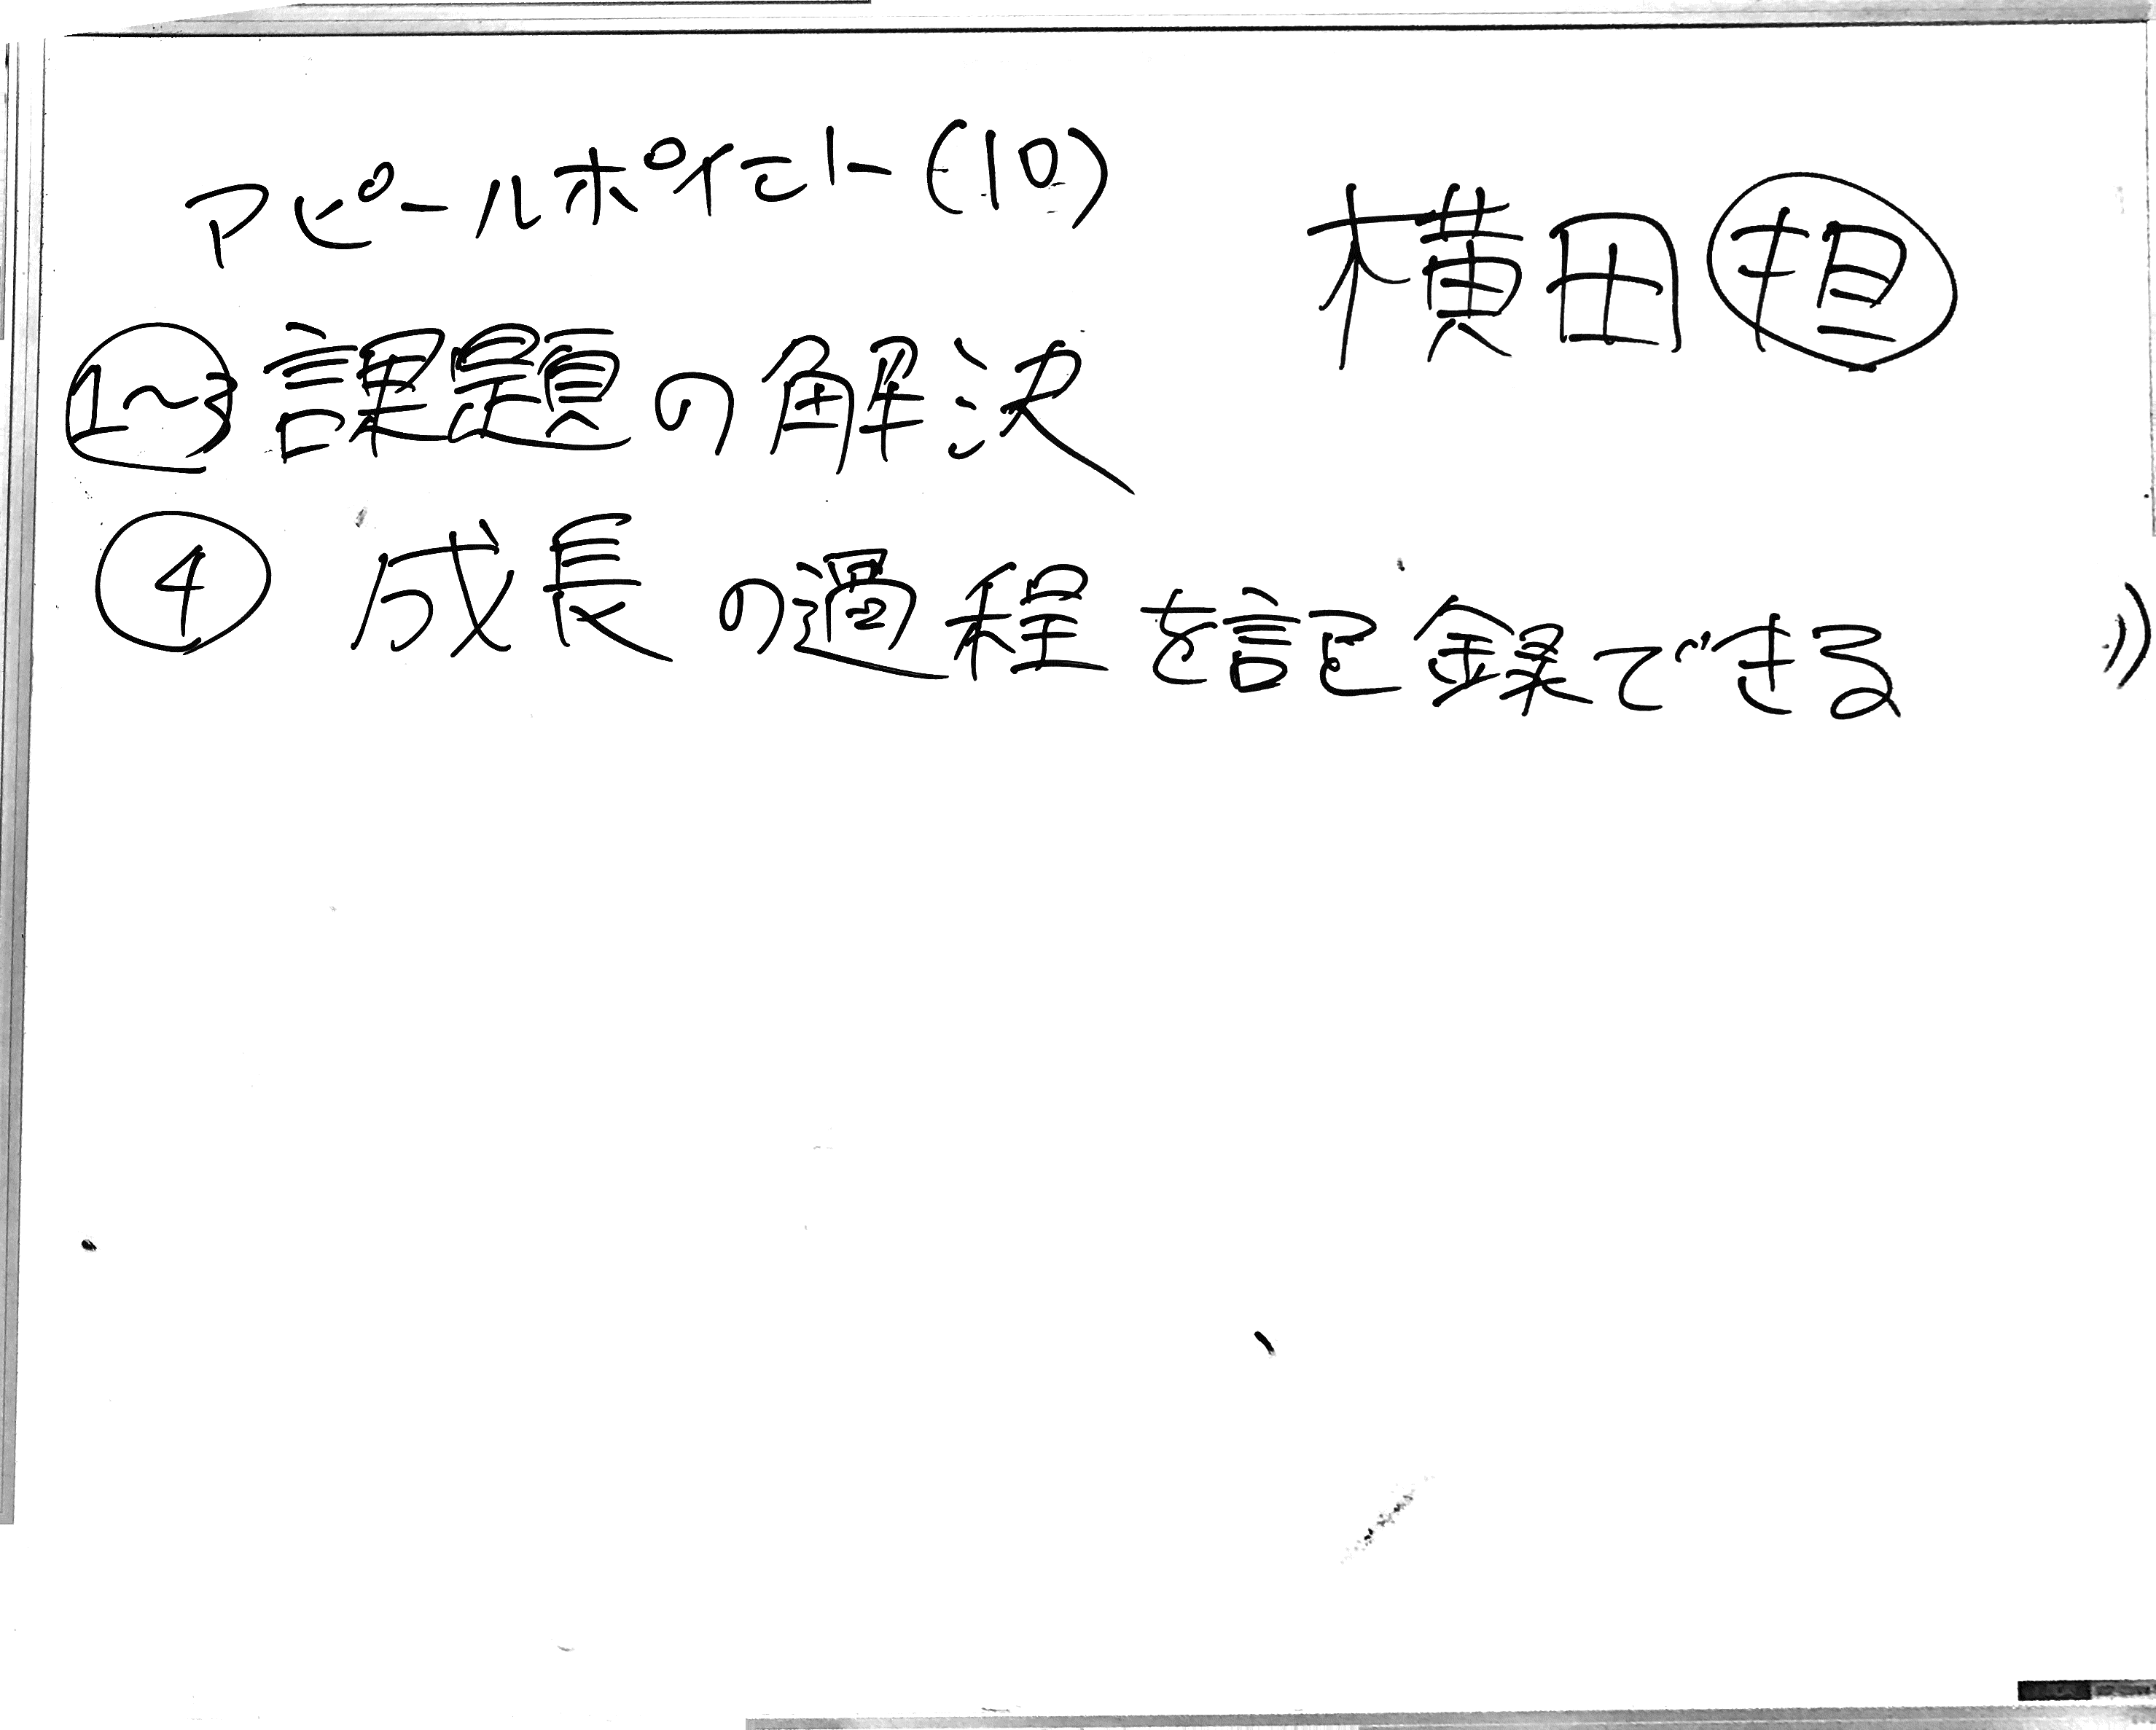 アピールポイント(10)
横田 担
1~3 課題の解決
④ 成長の過程を記録できる